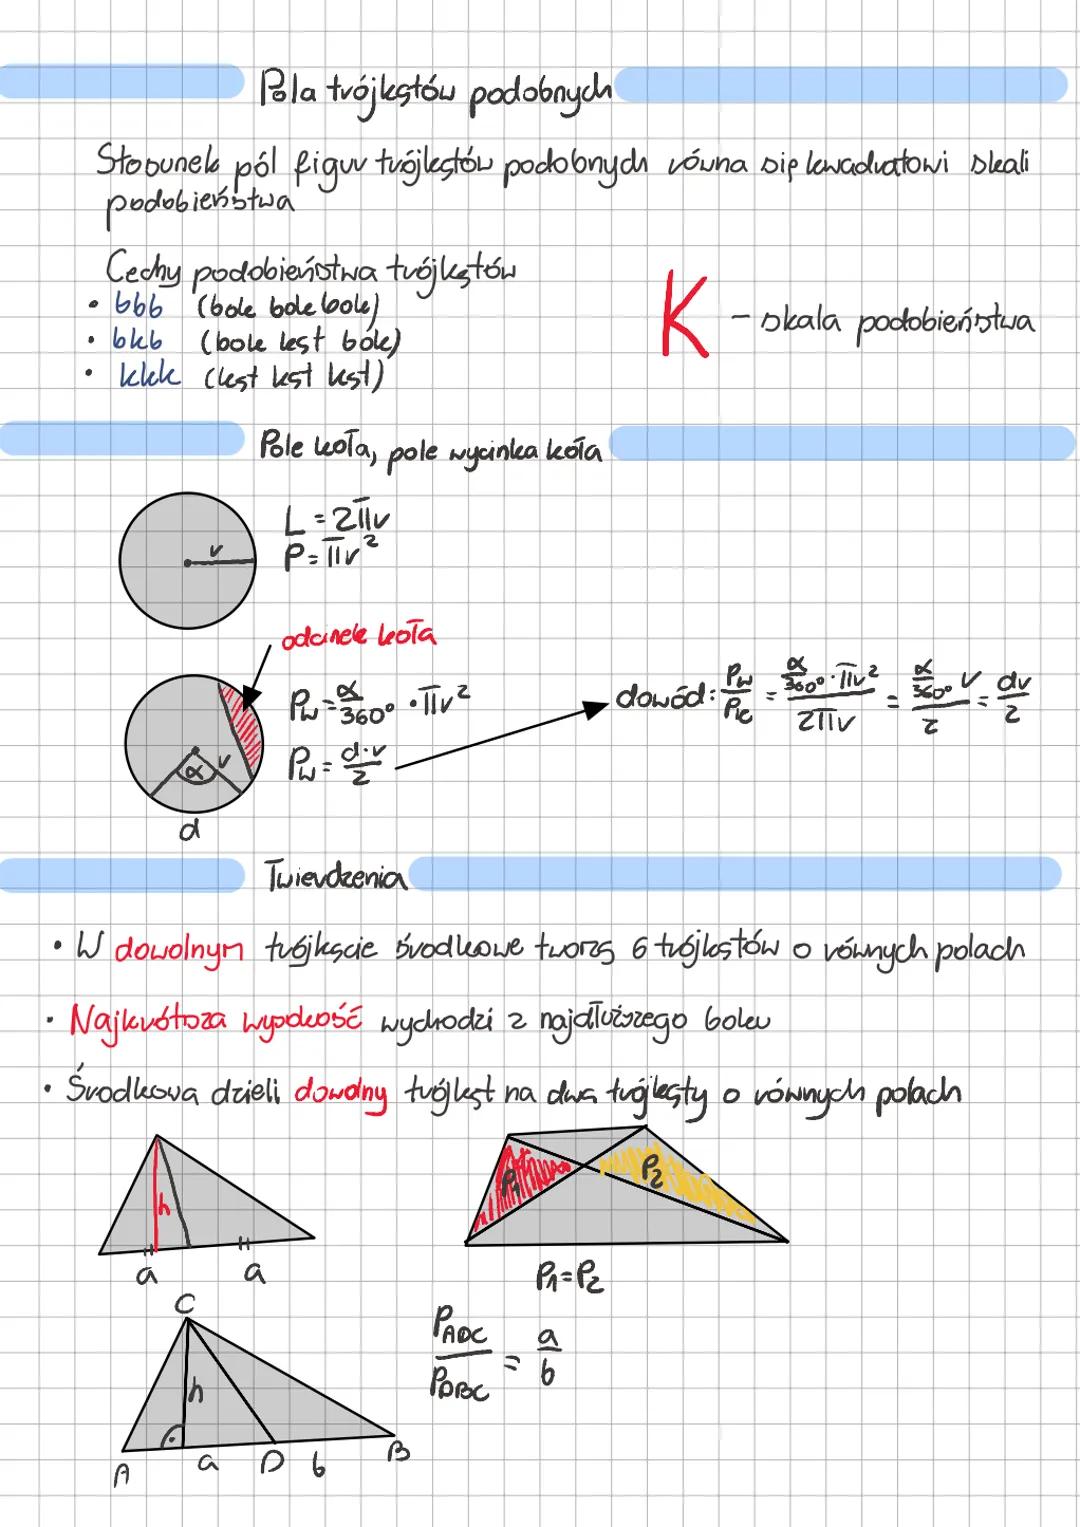 Pola trójkątów podobnych
Stosunek pól figur trójkątów podobnych równa się kwadratowi skali
podobieństwa
Cechy podobieństwa trójkątów
• bbb (bok bok bok)
• bkb (bok kąt bok)
• kkk (kąt kąt kąt)
K - skala podobieństwa
Pole koła, pole wycinka koła
r
L = 2πr
P = πr²
odcinek koła
α r
d
Pw = α/360° · πr²
Pw = d·r/2
dowód: Pw/Pk = (α/360° · πr²)/(2πr) = (α/360° r)/2 = dr/2
Twierdzenia
• W dowolnym trójkącie środkowe tworzą 6 trójkątów o równych polach
• Najkrótsza wysokość wychodzi z najdłuższego boku
• Środkowa dzieli dowolny trójkąt na dwa trójkąty o równych polach
h
a a
P1 P2
P1 = P2
C
h
A a D b B
PADC/PDBC = a/b